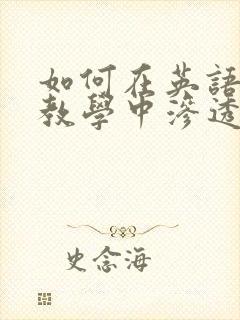 如何在英語
教學中滲透
史念海